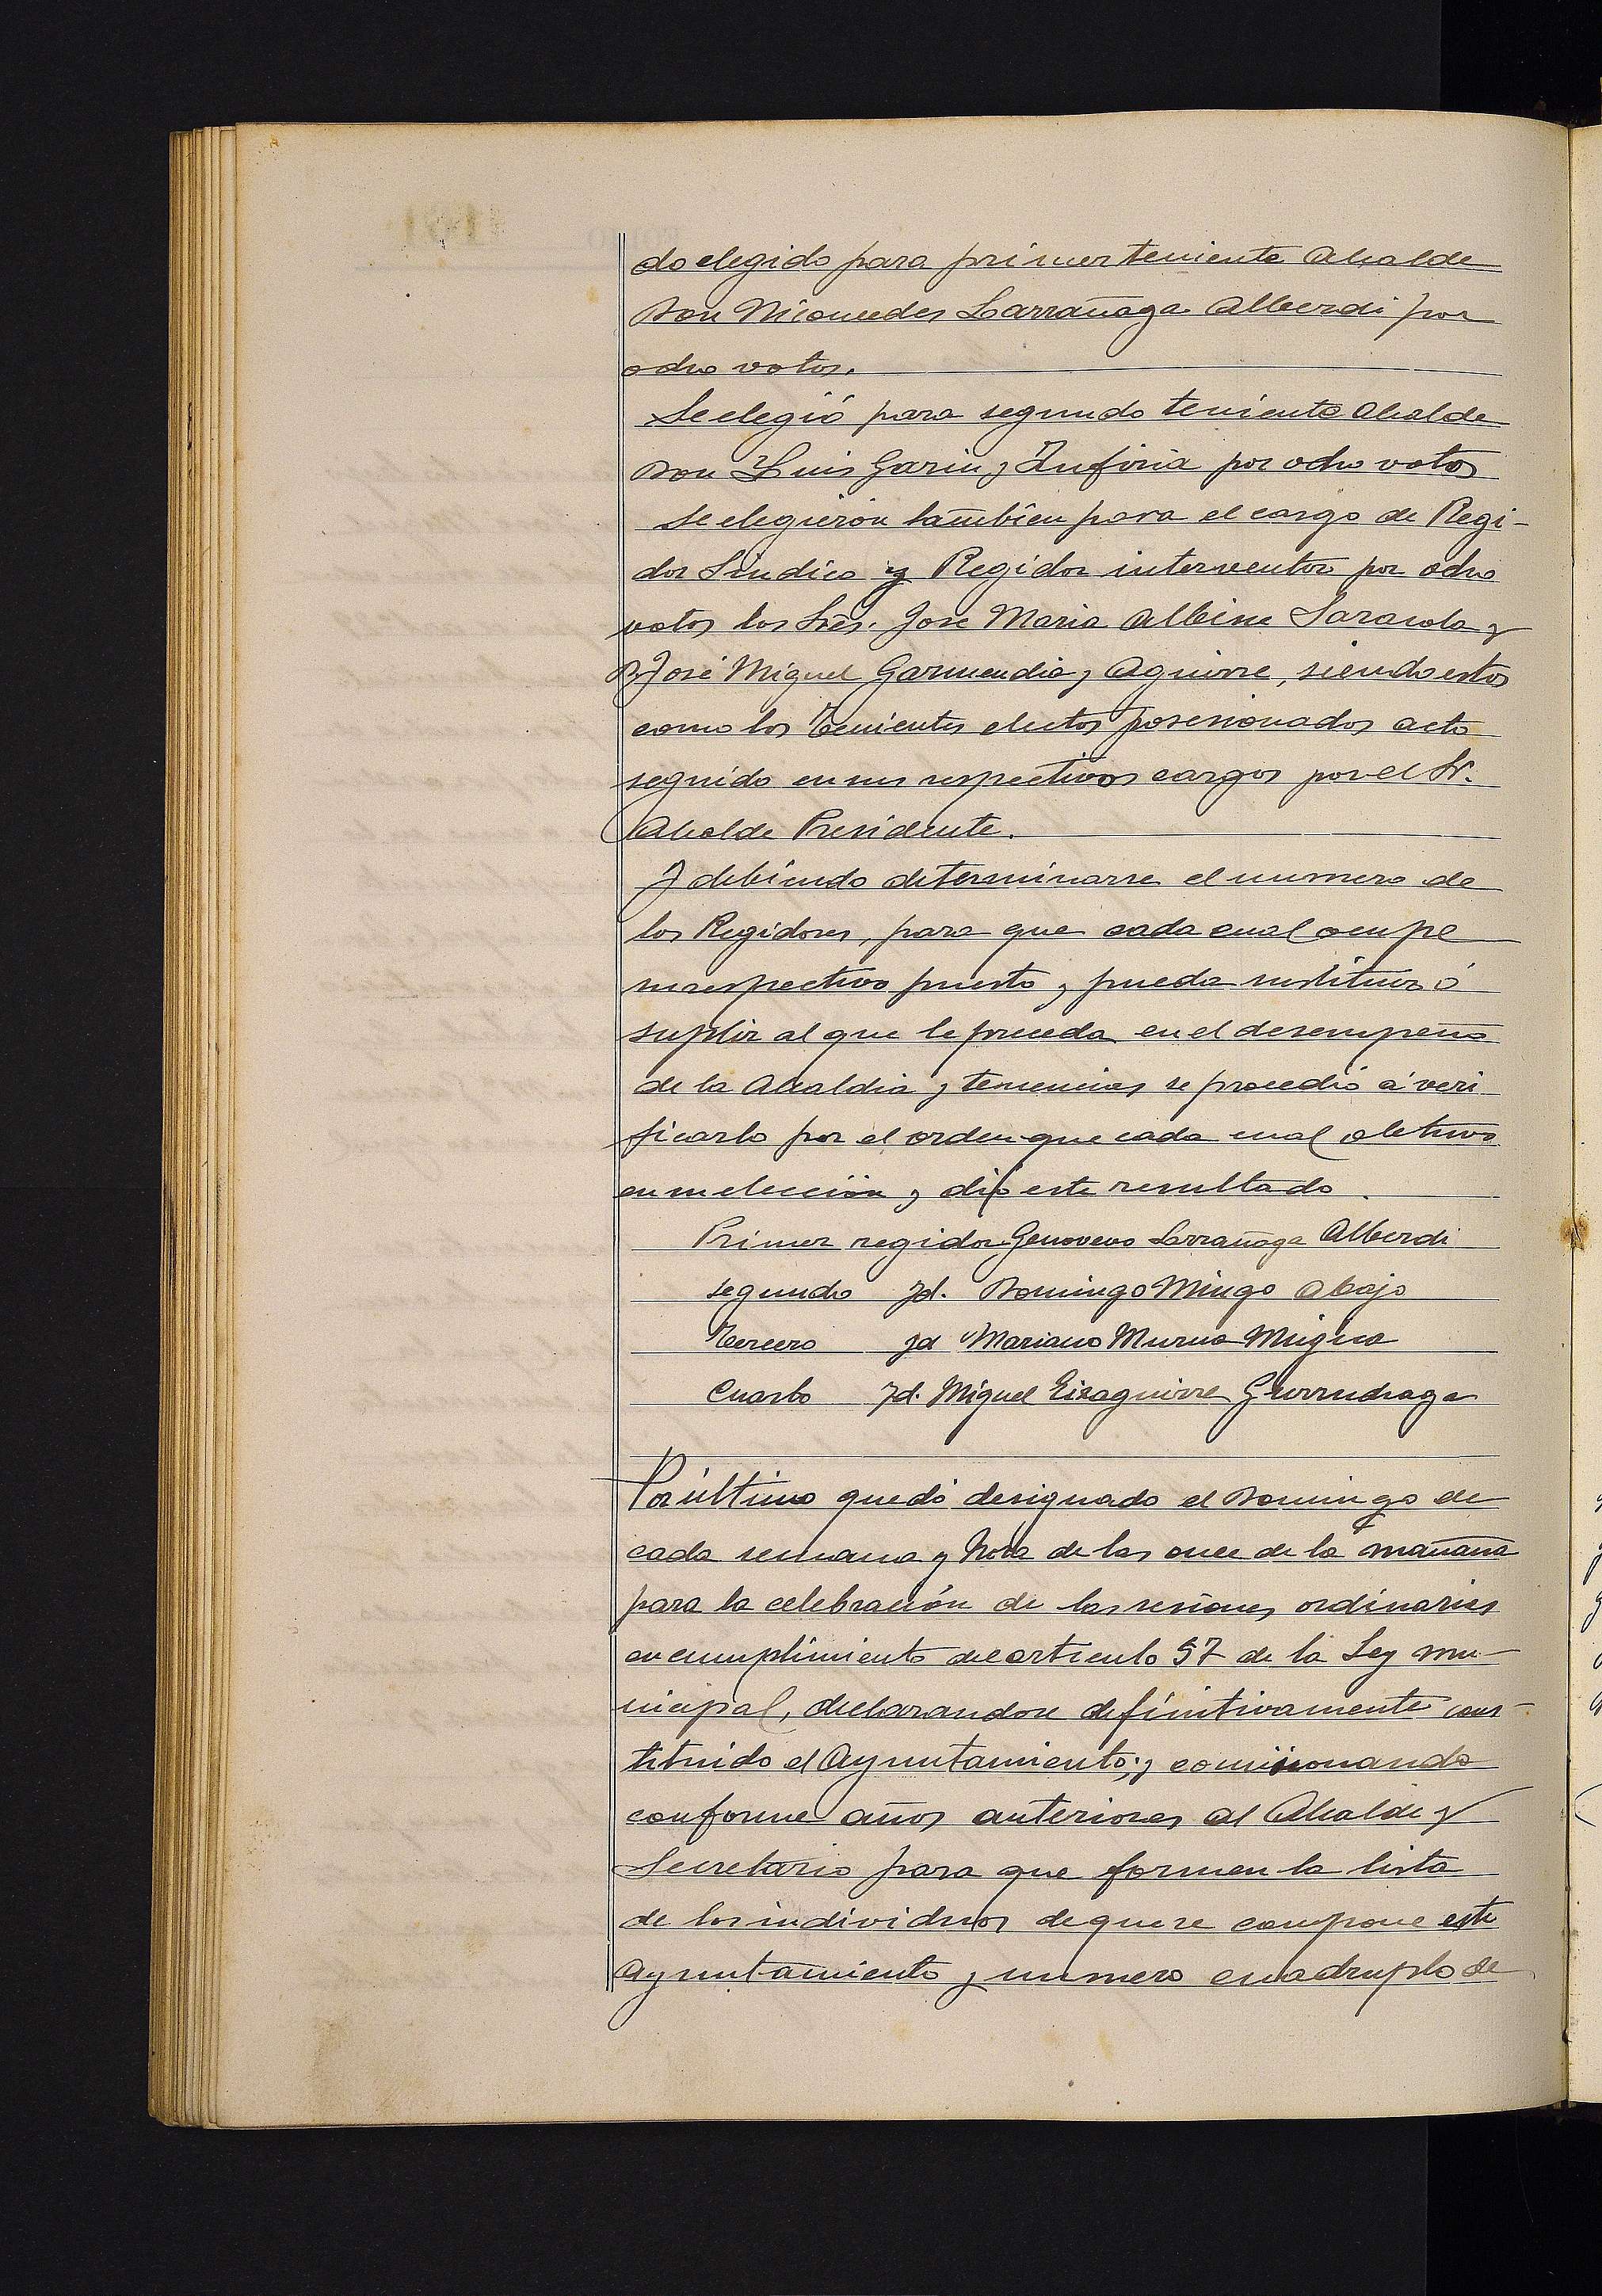 do elegido para primer teniente Alcalde
Don Nicomedes Larrañaga Alberdi por
ocho votos.
Se elegió para segundo teniente Alcalde
Don Luis Garin y por ocho votos
Se elegieron tambien para el cargo de Regi-
dor Sindico y Regidor interventor por ocho
votos los Srés. Jose Maria Albisu Sarasola y
D José Miguel Garmendia y Aguirre, siendo estos
como los Tenientes electos posesionados acto
seguido en sus respectivos cargos por el Sr.
Alcalde Presidente.
Y debiendo determinarse el numero de
los Regidores, para que cada cual ocupe
su respectivo puesto y pueda sustituir ó
suplir al que le preceda en el desempeño
de la Alcaldia y tenencias se procedió á veri
ficarlo por el orden que cada cual obtuvo
en su elección y dió este resultado.
Primer regidor Genovevo Larrañaga Alberdi
segundo Id. Domingo Mingo Abajo
Tercero Id Mariano Murua Mugica
Cuarto Id. Miguel Eizaguirre Gurruchaga
Por último quedó designado el Domingo de
cada semana y hora de las once de la mañana
para la celebración de las sesiones ordinarias
en cumplimiento del articulo 57 de la Ley mu-
nicipal, declarandose definitivamente cons-
tituido el Ayuntamiento; y comisionando
conforme años anteriores al Alcalde y
Secretario para que formen la lista
de los individuos de que se compone este
Ayuntamiento y numero cuadruplo de